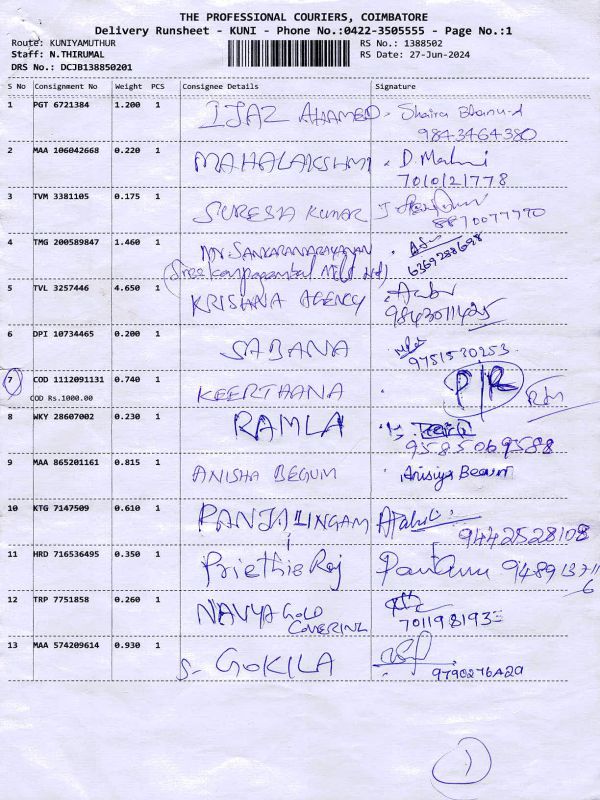 THE PROFESSIONAL COURIERS, COIMBATORE
Delivery Runsheet - KUNI - Phone No.:0422-3505555 - Page No.:1
Route: KUNIYAMUTHUR RS No.: 1388502
Staff: N.THIRUMAL RS Date: 27-Jun-2024
DRS No.: DCJB138850201
S No Consignment No Weight PCS Consignee Details Signature
1 PGT 6721384 1.200 1 IJAZ AHAMED Shaira Bhanu
9843464380
2 MAA 106042668 0.220 1 MAHALAKSHMI D. Mahi
7010121778
3 TVM 3381105 0.175 1 SURESH KUMAR J
8870077770
4 TMG 200589847 1.460 1 Mr. SANKARANARAYANAN
6369288698
(Sree Karpagambal Mills Ltd)
5 TVL 3257446 4.650 1 KRISHNA AGENCY
9843011425
6 DPI 10734465 0.200 1 SABANA
9751530253
7 COD 1112091131 0.740 1 KEERTHANA P/R
COD Rs.1000.00
8 WKY 28607002 0.230 1 RAMLA
9585069588
9 MAA 865201161 0.815 1 ANISHA BEGUM Anisiya Begum
10 KTG 7147509 0.610 1 PANJALINGAM
9442528108
11 HRD 716536495 0.350 1 Priethie Raj
12 TRP 7751858 0.260 1 NAVYA GOLD
COVERING
13 MAA 574209614 0.930 1 S- GOKILA
1